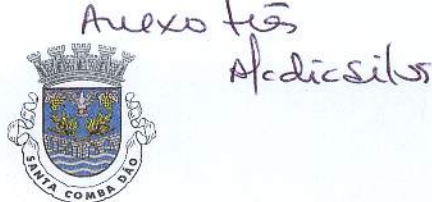 Anexo três
SANTA COMBA DÃO